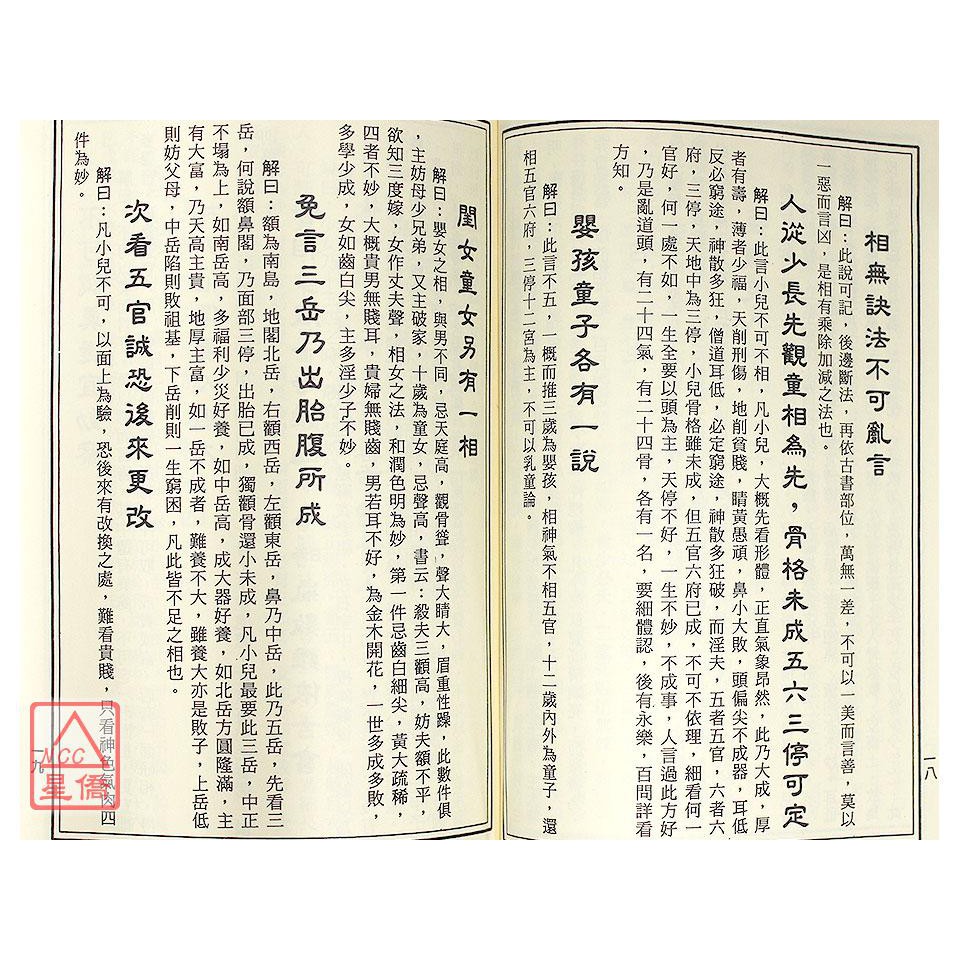 相無訣法不可亂言
解曰：此說可記，後邊斷法，再依古書部位，萬無一差，不可以一美而言善，莫以
一惡而言凶，是相有乘除加減之法也。
人從少長先觀童相為先，骨格未成五六三停可定
解曰：此言小兒不可不相，凡小兒，大概先看形體，正直氣象昂然，此乃大成，厚
者有壽，薄者少福，天削刑傷，地削貧賤，睛黃愚頑，鼻小大敗，頭偏尖不成器，耳低
反必窮途，神散多狂，僧道耳低，必定窮途，神散多狂破，而淫夫，五者五官，六者六
府，三停，天地中為三停，小兒骨格雖未成，但五官六府已成，不可不依理，細看何一
官好，何一處不如，一生全要以頭為主，天停不好，一生不妙，不成事，人言過此方好
，乃是亂道頭，有二十四氣，有二十四骨，各有一名，要細體認，後有永樂，百問詳看
方知。
嬰孩童子各有一說
解曰：此言不五，一概而推三歲為嬰孩，相神氣不相五官，十二歲內外為童子，還
相五官六府，三停十二宮為主，不可以乳童論。
一八
閨女童女另有一相
解曰：嬰女之相，與男不同，忌天庭高，觀骨聳，聲大睛大，眉重性躁，此數件俱
，主妨母少兄弟，又主破家，十歲為童女，忌聲高，書云：殺夫三顴高，妨夫額不平，
欲知三度嫁，女作丈夫聲，相女之法，和潤色明為妙，第一件忌齒白細尖，黃大疏稀，
四者不妙，大概貴男無賤耳，貴婦無賤齒，男若耳不好，為金木開花，一世多成多敗，
多學少成，女如齒白尖，主多淫少子不妙。
免言三岳乃出胎腹所成
解曰：額為南島，地閣北岳，右顴西岳，左顴東岳，鼻乃中岳，此乃五岳，先看三
岳，何說額鼻閣，乃面部三停，出胎已成，獨顴骨還小未成，凡小兒最要此三岳，中正
不塌為上，如南岳高，多福利少災好養，如中岳高，成大器好養，如北岳方圓隆滿，主
有大富，乃天高主貴，地厚主富，如一岳不成者，難養不大，雖養大亦是敗子，上岳低
則妨父母，中岳陷則敗祖基，下岳削則一生窮困，凡此皆不足之相也。
次看五官誠恐後來更改
解曰：凡小兒不可，以面上為驗，恐後來有改換之處，難看貴賤，只看神色氣肉四
件為妙。
一九
NCC
星僑